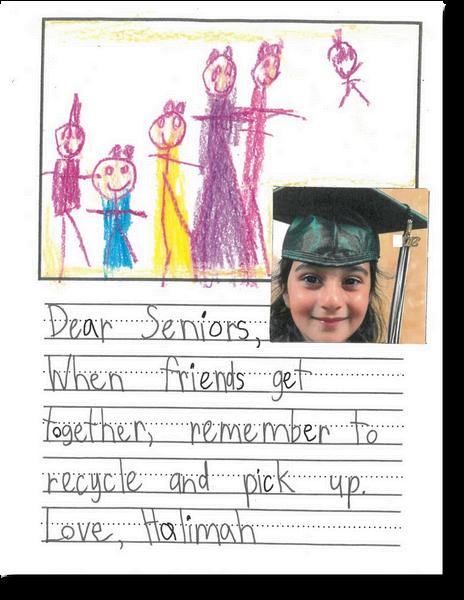 Dear Seniors,
When friends get
together, remember to
recycle and pick up.
Love, Halimah